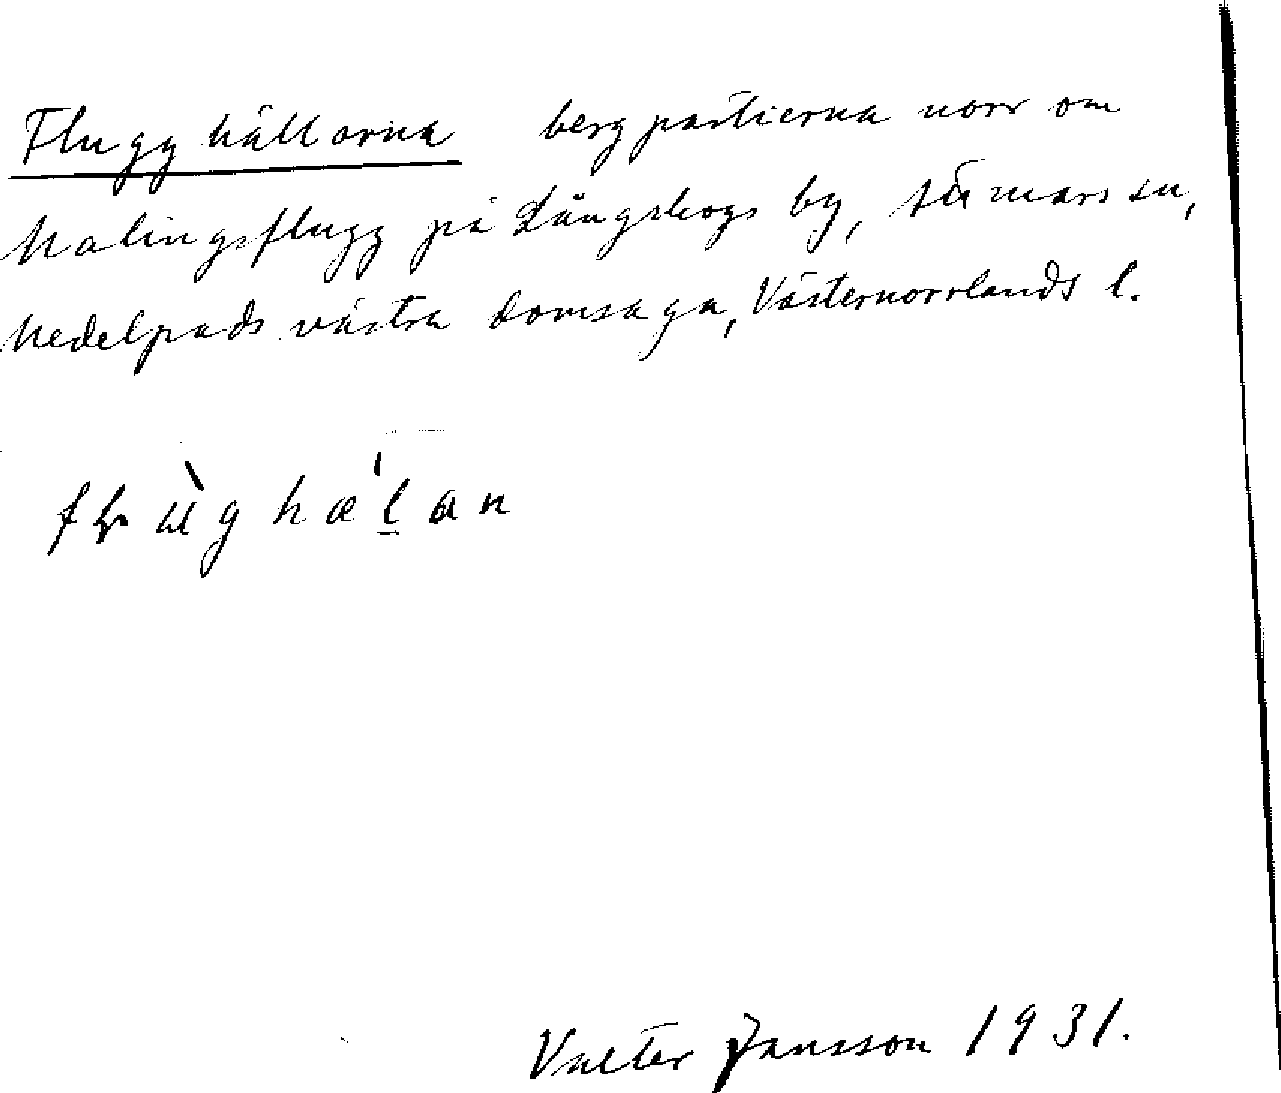 Flugghällorna bergpartierna norr om
Malingsflugg på Långskogs by, Attmars sn,
Medelpads västra domsaga, Västernorrlands l.
Valter Jansson 1931.